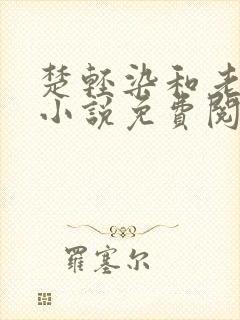 楚轻染和老
小說免費閱
羅塞尔